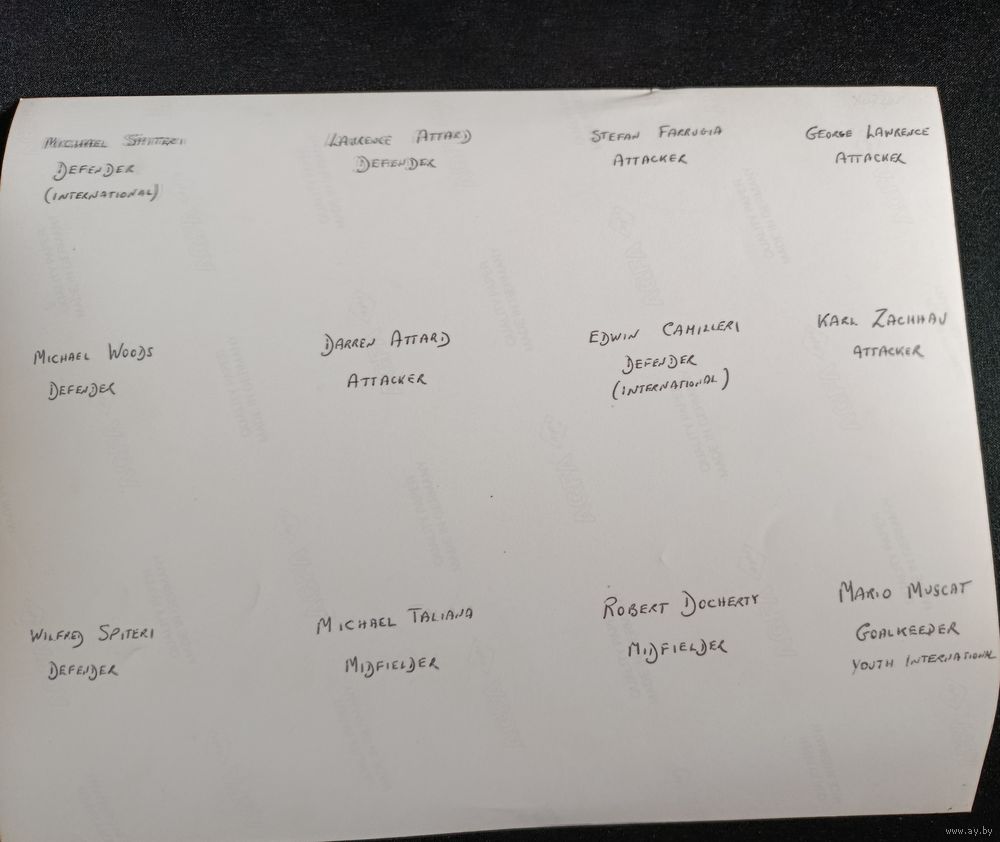 MICHAEL SPITERI
DEFENDER
(INTERNATIONAL)
LAURENCE ATTARD
DEFENDER
STEFAN FARRUGIA
ATTACKER
GEORGE LAWRENCE
ATTACKER
MICHAEL WOODS
DEFENDER
DARREN ATTARD
ATTACKER
EDWIN CAMILLERI
DEFENDER
(INTERNATIONAL)
KARL ZACHHAU
ATTACKER
WILFRED SPITERI
DEFENDER
MICHAEL TALIANA
MIDFIELDER
ROBERT DOCHERTY
MIDFIELDER
MARIO MUSCAT
GOALKEEPER
YOUTH INTERNATIONAL
www.ay.by